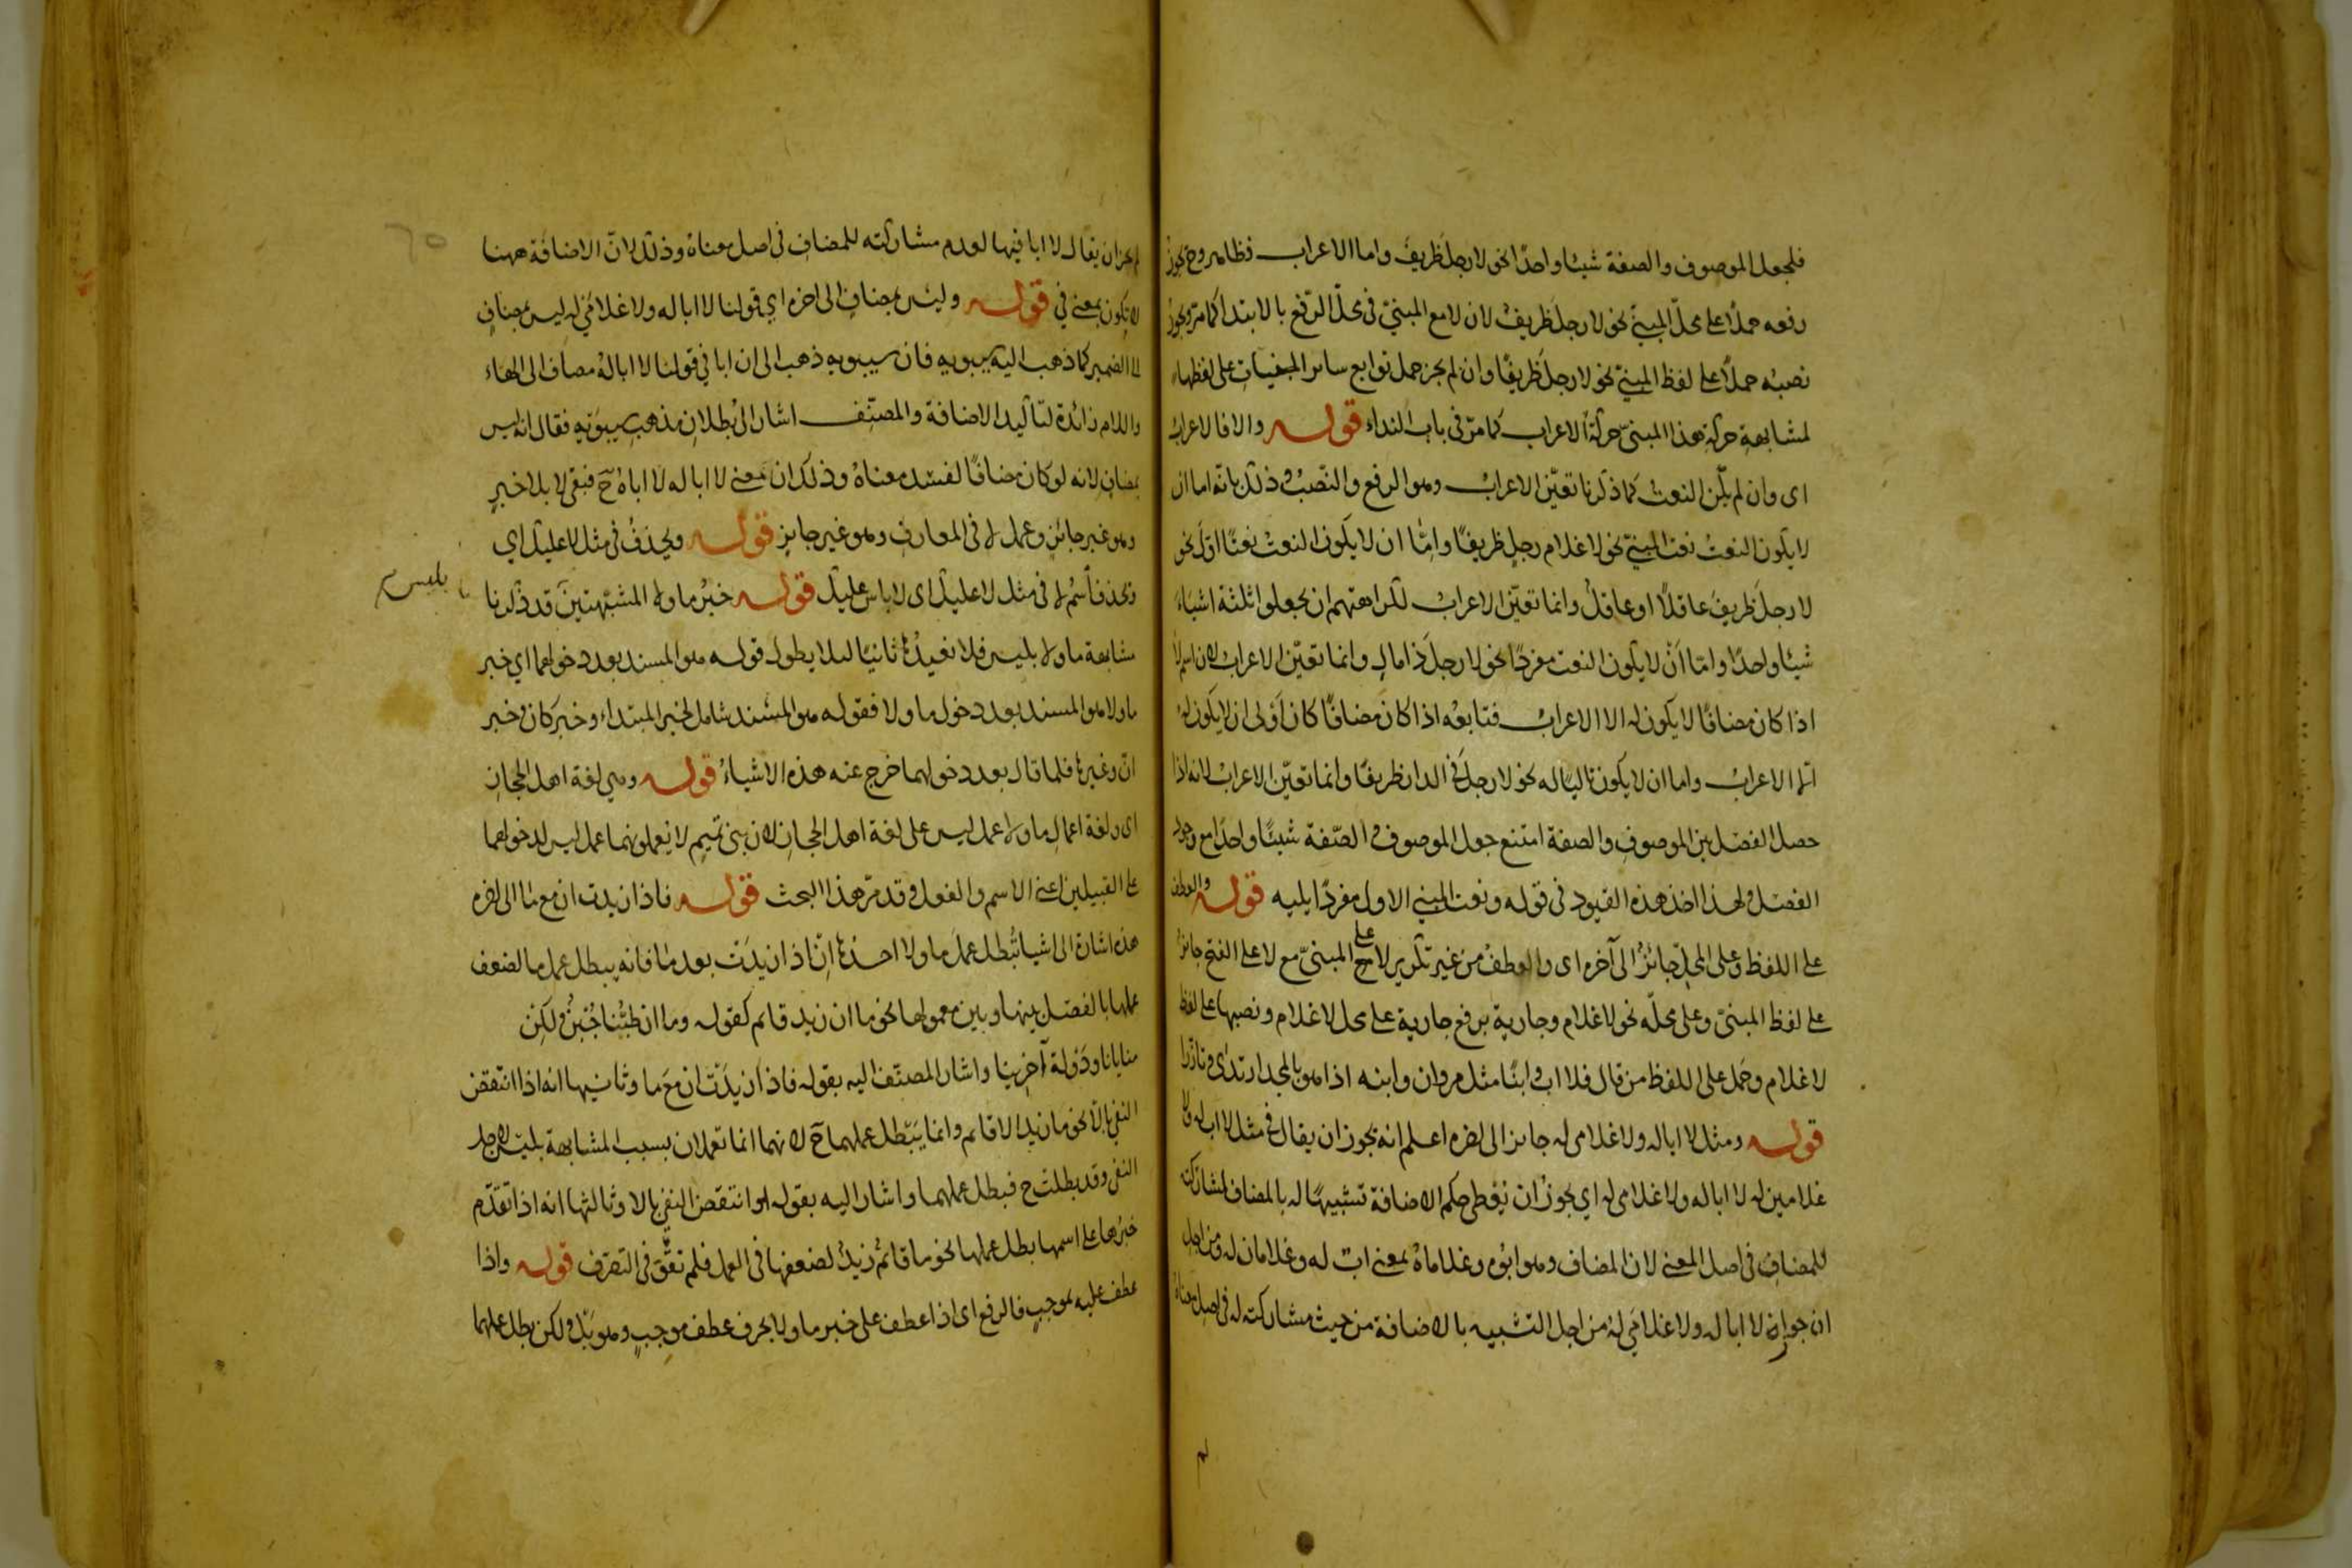 فلجعل الموصوف والصفة شيئا واحدًا نحو لا رجلَ ظريفَ واما الاعراب فظاهر وح يجوز
رفعه حملًا على محلّ المبنيّ نحو لا رجلَ ظريفٌ لان لا مع المبنيّ فى محلّ الرّفع بالابتدا كما مرّ ويجوز
نصبُه حملًا على لفظ المبنيّ نحو لا رجلَ ظريفًا وان لم يجز حمل توابع سائر المبنيات على لفظها
لمشابهةِ حركةِ هذا المبنىّ حركةَ الاعراب كما مرّ فى باب النداء قوله والا فالاعراب
اى وان لم يكن النعت كما ذكرنا تعيّن الاعراب وهو الرفع والنّصب وذلك بانّه اما ان
لا يكون النعتُ نعت المبنيّ نحو لا غلام رجلٍ ظريفًا وامّا ان لا يكون النعتُ نعتًا اوّل نحو
لا رجلَ ظريفَ عاقلًا او عاقلٌ وانما تعيّن الاعرابُ لكراهتهم ان يجعلوا ثلثة اشياءَ
شيئا واحدًا وامّا اَنْ لا يكون النعت مفردًا نحو لا رجلَ ذا مالٍ وانما تعيّن الاعراب لان اسم لا
اذا كان مضافًا لا يكون له الا الاعرابُ فتابعُه اذا كان مضافًا كان اَوْلى ان لا يكون له
الا الاعرابُ واما ان لا يكون تاليًا له نحو لا رجلَ فى الدار ظريفًا وانما تعيّن الاعرابُ لانه اذا
حصل الفصل بين الموصوفِ والصفة امتنع جعل الموصوف والصّفة شيئًا واحدًا مع وجود
الفصل ولهذا اخذ هذه القيود فى قوله ونعت المبني الاول مفردًا يليه قوله والعطف
على اللفظ وعلى المحلّ جائزٌ الى آخره اى والعطفُ من غير تكرير لا على المبنىّ مع لا على الفتح جائز
على لفظ المبنىّ وعلى محلّه نحو لا غلام وجارية برفع جارية على محل لا غلام ونصبها على لفظ
لا غلام وحَمل على اللفظ من قال فلا اب وابنًا مثل مروان وابنه اذا هو بالمجد ارتدى وتازّرا
قوله ومثل لا ابا له ولا غلامى له جائز الى اخره اعلم انه يجوز ان يقال فى مثل لا اب له ولا
غلامين له لا ابا له ولا غلامى له اي يجوز ان يُعطى حكم الاضافة تشبيهًا له بالمضاف لمشاركته
للمضافِ فى اصل المعنى لان المضاف وهو ابوه وغلاماهُ بمعنى اب له وغلامان له ومن اجل
ان جوازه لا ابا له ولا غلامَي لهُ من اجل التشبيه بالاضافة من حيث مشاركته له فى اصل معناهُ
لم
لم يجز ان يقال لا ابا فيها لعدم مشاركته للمضاف فى اصل معناهُ وذلك لانّ الاضافة ههنا
لا تكون بمعنى في قوله وليس بمضافٍ الى اخره اي قولنا لا ابا له ولا غلامَي له ليس بمضافٍ
الى الضمير كما ذهب اليه سيبويه فان سيبويه ذهب الى ان ابا في قولنا لا ابا لهُ مضاف الى الهاء
واللام زائدة لتاكيد الاضافة والمصنّف اشار الى بطلانِ مذهبِ سيبويه فقال انه ليس
بمضافٍ لانه لو كان مضافًا لفسد معناهُ وذلك ان معنى لا ابا له لا اباهُ ح فبقى لا بلا خبرٍ
وهو غير جائزٍ وعمل لا فى المعارف وهو غير جايزٍ قوله ويحذفُ فى مثل لا عليك اي
وتحذف اسم لا فى مثل لا عليك اى لا باس عليك قوله خبرُ ما ولا المشبّهتين قد ذكرنا
بليس
مشابهة ما ولا بليس فلا نعيدُها ثانيًا لئلا يطول قوله هو المسند بعد دخولهما اي خبر
ما ولا هو المسند بعد دخول ما ولا فقوله هو المسند شامل لخبر المبتداء وخبر كان وخبر
انّ وغيرها فلما قال بعد دخولهما خرج عنه هذه الاشياءُ قوله وهي لغة اهل الحجازِ
اى ولغة اعمالِ ما ولا عمل ليس على لغة اهل الحجازِ لان بنى تميمٍ لا يُعملونهما عمل ليس لدخولهما
على القبيلين اعنى الاسم والفعل وقد مرّ هذا البحث قوله فاذا زيدت ان مع ما الى اخره
هذه اشارة الى اشيا تُبطل عملَ ما ولا احدُها انّ اذا زيدَت بعد ما فانه يبطل عمل ما لضعف
عملها بالفصل بينها وبين معمولها نحو ما ان زيد قائم كقوله وما ان طِبُّنا جُبْنٌ ولكن
منايانا ودَوْلةُ آخرينا واشار المصنّف اليه بقوله فاذا زيدَتْ ان مع ما وثانيها انه اذا انتقض
النفى بالّا نحو ما زيد الا قائم وانما يَبْطل عملهما ح لانهما انما تعملان بسبب المشابهة بليس لاجل
النفى وقد بطلت ح فبطل عملهما واشار اليه بقوله او انتقض النفى بالا وثالثها انه اذا تقدّم
خبرُها على اسمها بطل عملها نحو ما قائمٌ زيدٌ لضعفها فى العمل فلم تقوَّ فى التصرّف قوله واذا
عطف عليه بموجبٍ فالرفع اى اذا عطف على خبر ما ولا بحرف عطف موجبٍ وهو بَلْ ولكن بطل عملهما